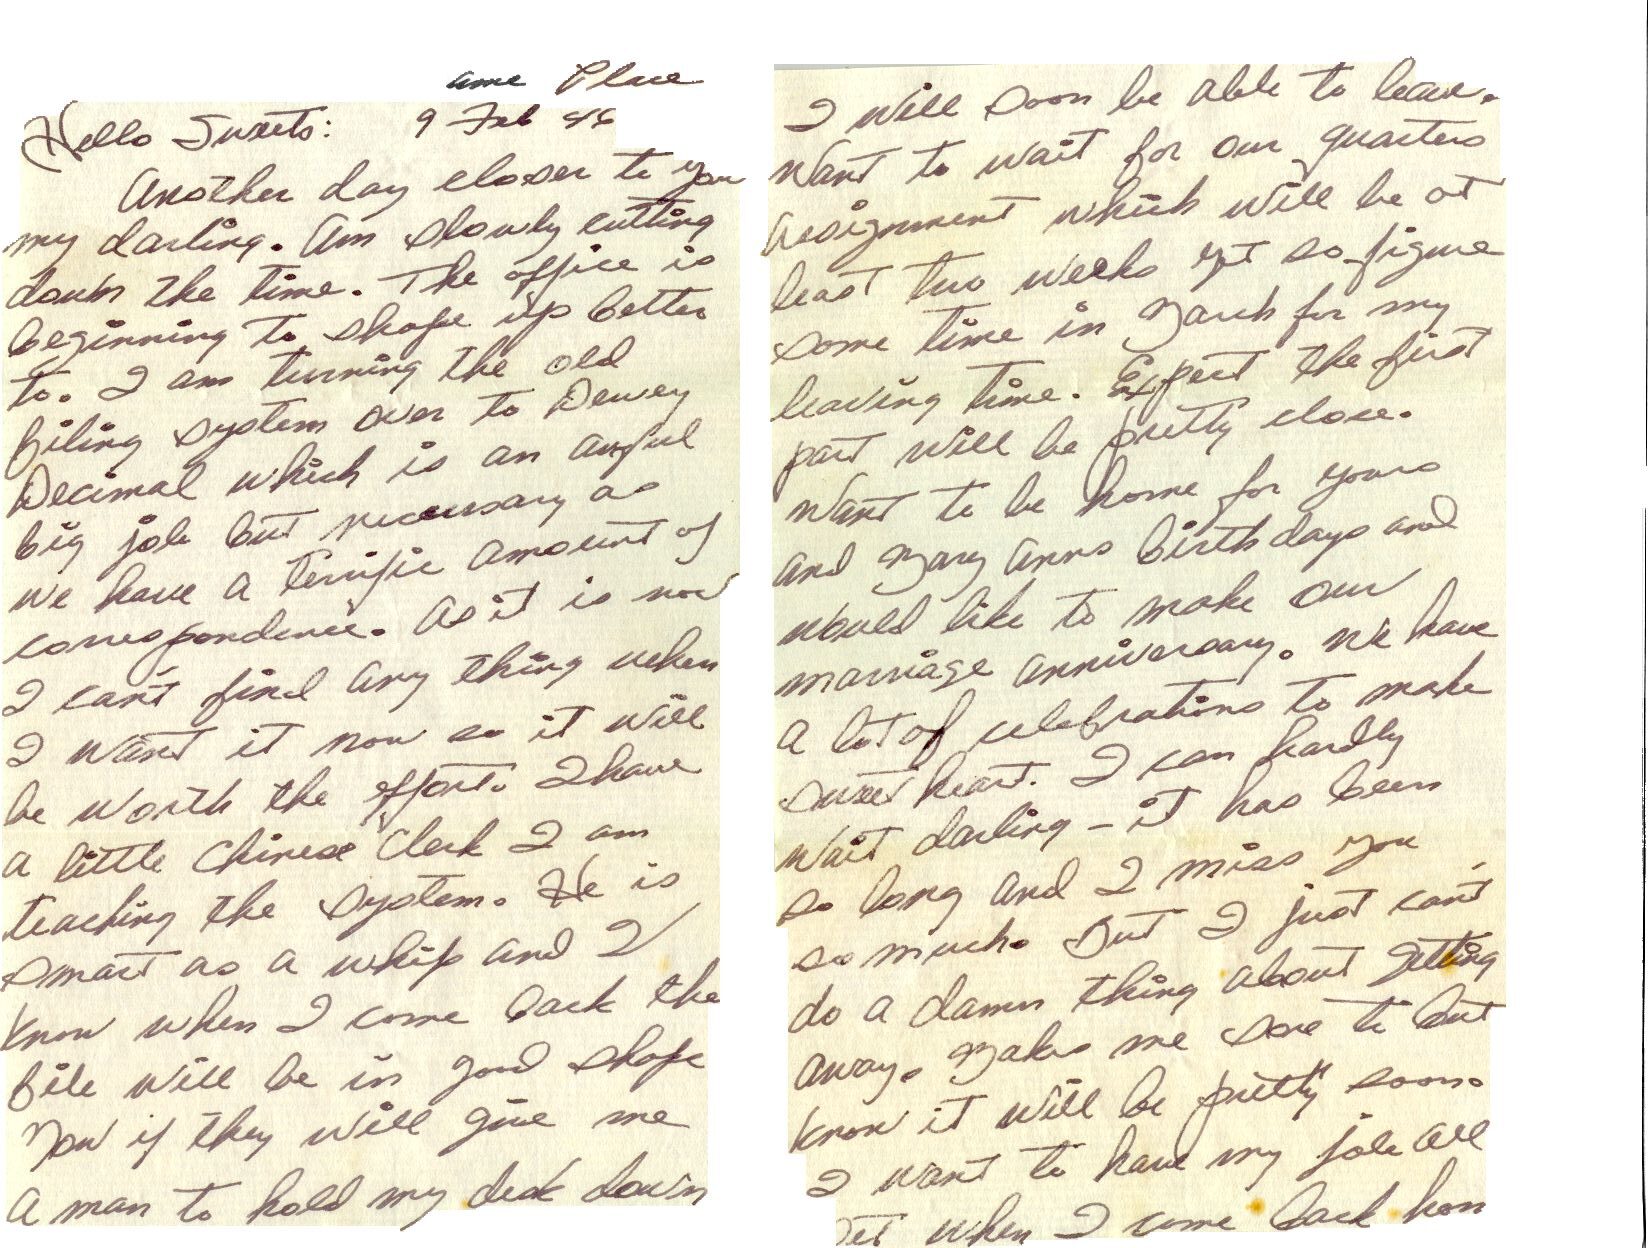 ame Place
Hello Sweets: 9 Feb 46
Another day closer to you
my darling. Am slowly cutting
down the time. The office is
beginning to shape up better
to. I am turning the old
filing system over to Dewey
Decimal which is an awful
big job but necessary as
we have a terrific amount of
correspondence. As it is now
I can't find any thing when
I want it now so it will
be worth the effort. I have
a little Chinese Clerk I am
teaching the system. He is
smart as a whip and I
know when I come back the
file will be in good shape
Now if they will give me
a man to hold my desk down
I will soon be able to leave.
Want to wait for our quarters
assignment which will be at
least two weeks yet so figure
some time in March for my
leaving time. Expect the first
part will be pretty close.
Want to be home for yours
and Mary Anns birthdays and
would like to make our
marriage anniversary. We have
a lot of celebrations to make
sweetheart. I can hardly
wait darling - it has been
so long and I miss you
so much. But I just can't
do a damn thing about getting
away. Makes me sore to but
know it will be pretty soon.
I want to have my job all
set when I come back hom